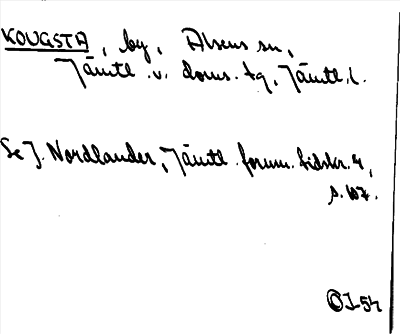 KOUGSTA, by, Alsens sn,
Jämtl. v. doms. tg, Jämtl. l.
Se J. Nordlander, Jämtl. fornm. tidskr. 4,
s. 107.
OJ-54